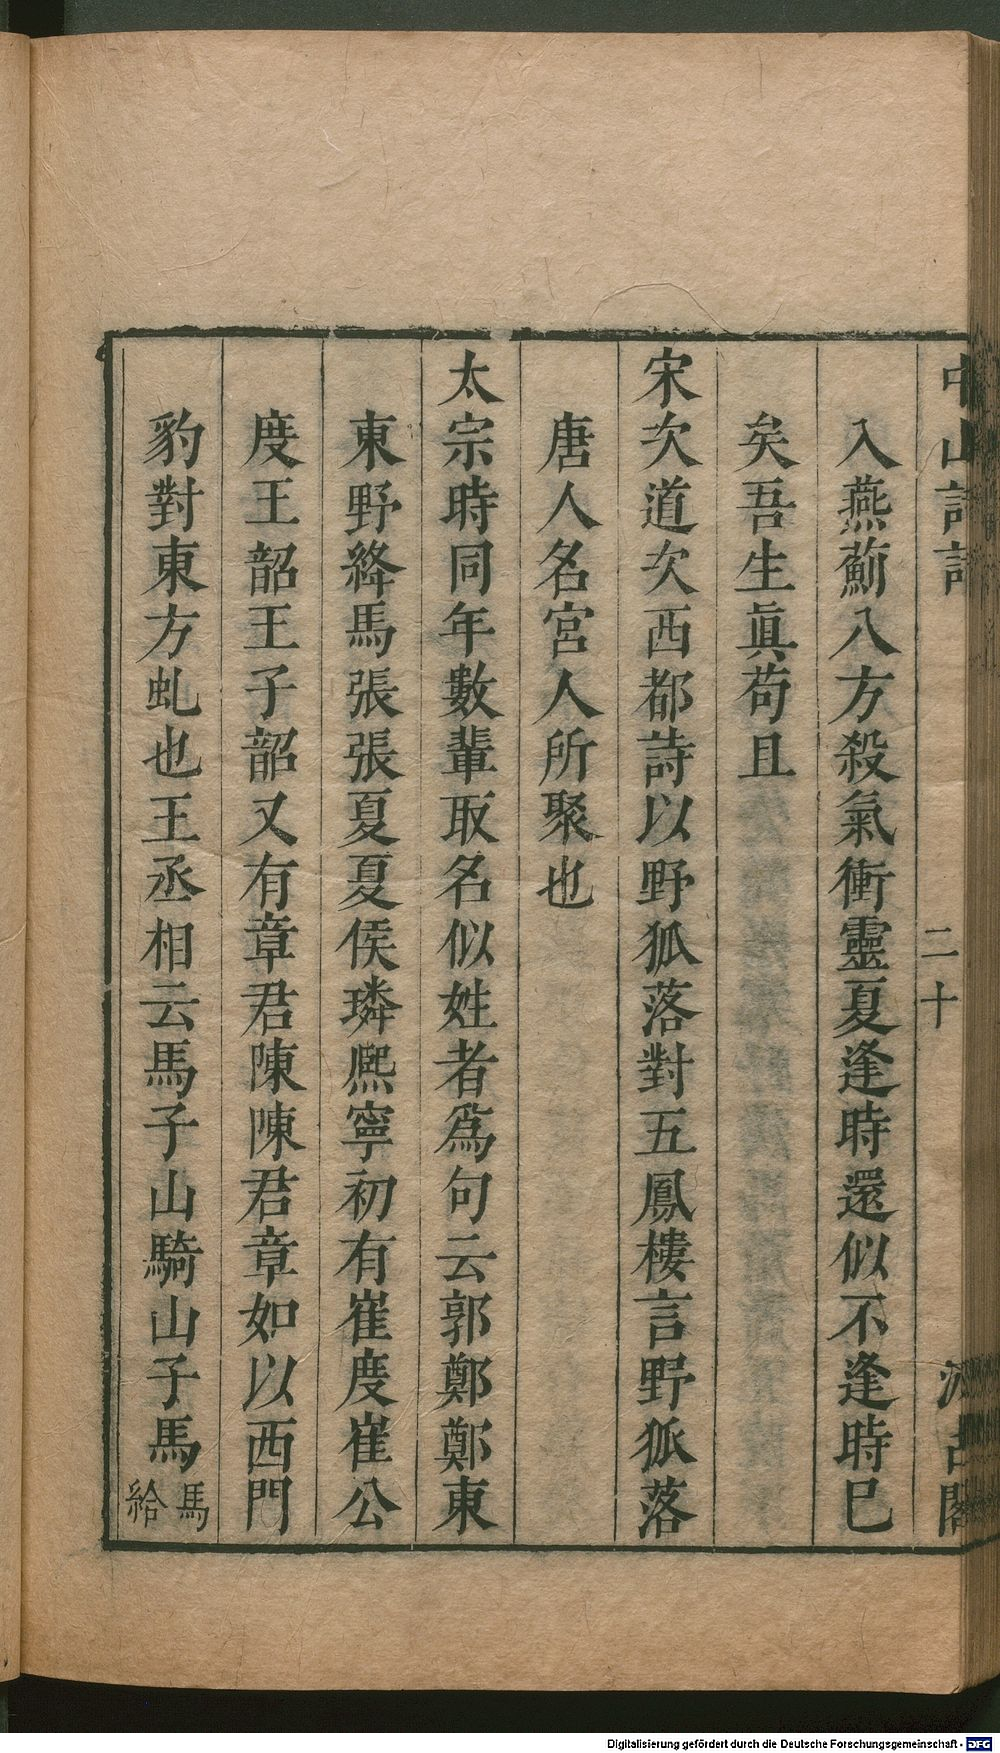 中山詩話 二十 汲古閣
入燕薊八方殺氣衝靈夏逢時還似不逢時巳
矣吾生眞苟且
宋次道次西都詩以野狐落對五鳳樓言野狐落
唐人名宮人所聚也
太宗時同年數輩取名似姓者爲句云郭鄭鄭東
東野絳馬張張夏夏侯璘熈寧初有崔度崔公
度王韶王子韶又有章君陳陳君章如以西門
豹對東方虬也王丞相云馬子山騎山子馬馬
給
Digitalisierung gefördert durch die Deutsche Forschungsgemeinschaft - DFG